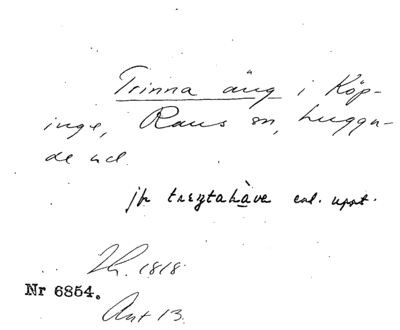 Trinna äng i Köp-
inge, Raus sn, Luggu-
de hd.
jfr treytahàve enl. uppt.
Lh. 1818
Nr 6854.
Ant 13.